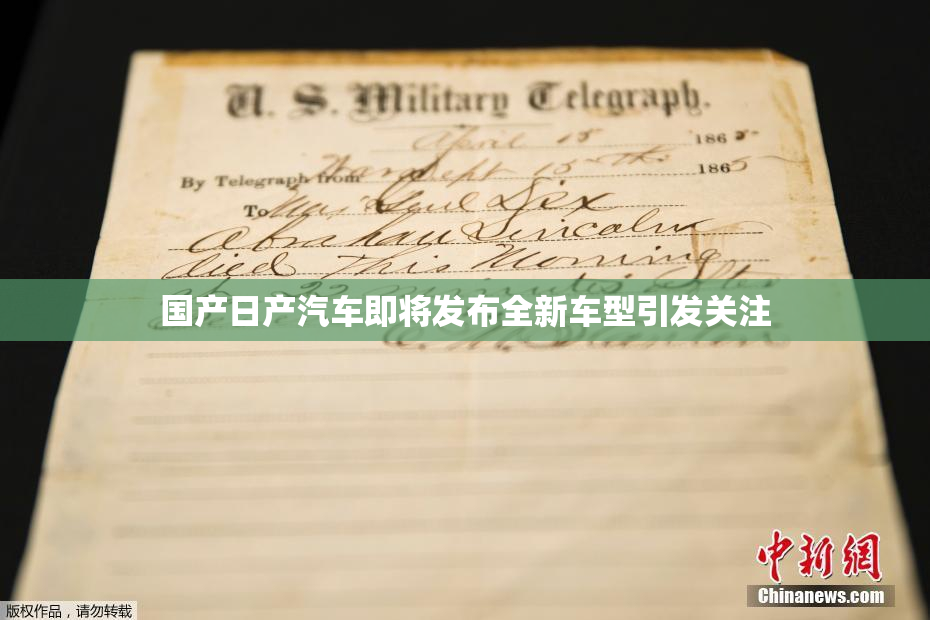 U. S. Military Telegraph.
April 15 1865
By Telegraph from War Dept 15th 1865
To Maj Genl Dix
Abraham Lincoln
died This Morning
at 22 minutes after
国产日产汽车即将发布全新车型引发关注
中新网
Chinanews.com
版权作品，请勿转载